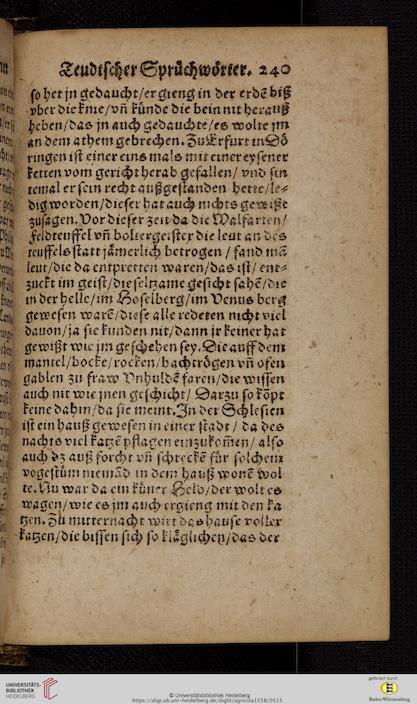 Teudtscher Sprüchwörter. 240
so het jn gedaucht/er gieng in der erdē biß
vber die knie/vñ künde die bein nit herauß
heben/das jn auch gedauchte/es wolte jm
an dem athem gebrechen. Zu Erfurt in Dö
ringen ist einer eins mals mit einer eysener
ketten vom gericht herab gefallen/ vnd sin
temal er sein recht außgestanden hette/le-
dig worden/dieser hat auch nichts gewißt
zusagen. Vor dieser zeit da die Walfarten/
Feldteuffel vñ boltergeister die leut an des
teuffels statt jämerlich betrogen / fand mā
leut/die da entpretten waren/das ist/ ent-
zuckt im geist/die seltzame gesicht sahē/die
in der helle/im Hoselberg/im Venus berg
gewesen warē/diese alle redeten nicht viel
dauon/ja sie kunden nit/dann jr keiner hat
gewißt wie jm geschehen sey. Die auff dem
mantel/böcke/rocken/bachtrögen vñ ofen
gablen zu fraw Vnhuldē faren/die wissen
auch nit wie jnen geschicht/ Darzu so kōpt
keine dahin/da sie meint. In der Schlesien
ist ein hauß gewesen in einer statt / da des
nachts viel katzē pflagen einzukom̄en/ also
auch dz auß forcht vñ schreckē für solchem
vogestüm niemād in dem hauß wonē wol
te. Nu war da ein küner Held/der wolt es
wagen/wie es jm auch ergieng mit den ka
tzen. Zu mitternacht wirt das hause voller
katzen/die bissen sich so kläglichen/das der
UNIVERSITÄTS-
BIBLIOTHEK
HEIDELBERG
© Universitätsbibliothek Heidelberg
https://digi.ub.uni-heidelberg.de/diglit/agricola1558/0515
gefördert durch
Baden-Württemberg